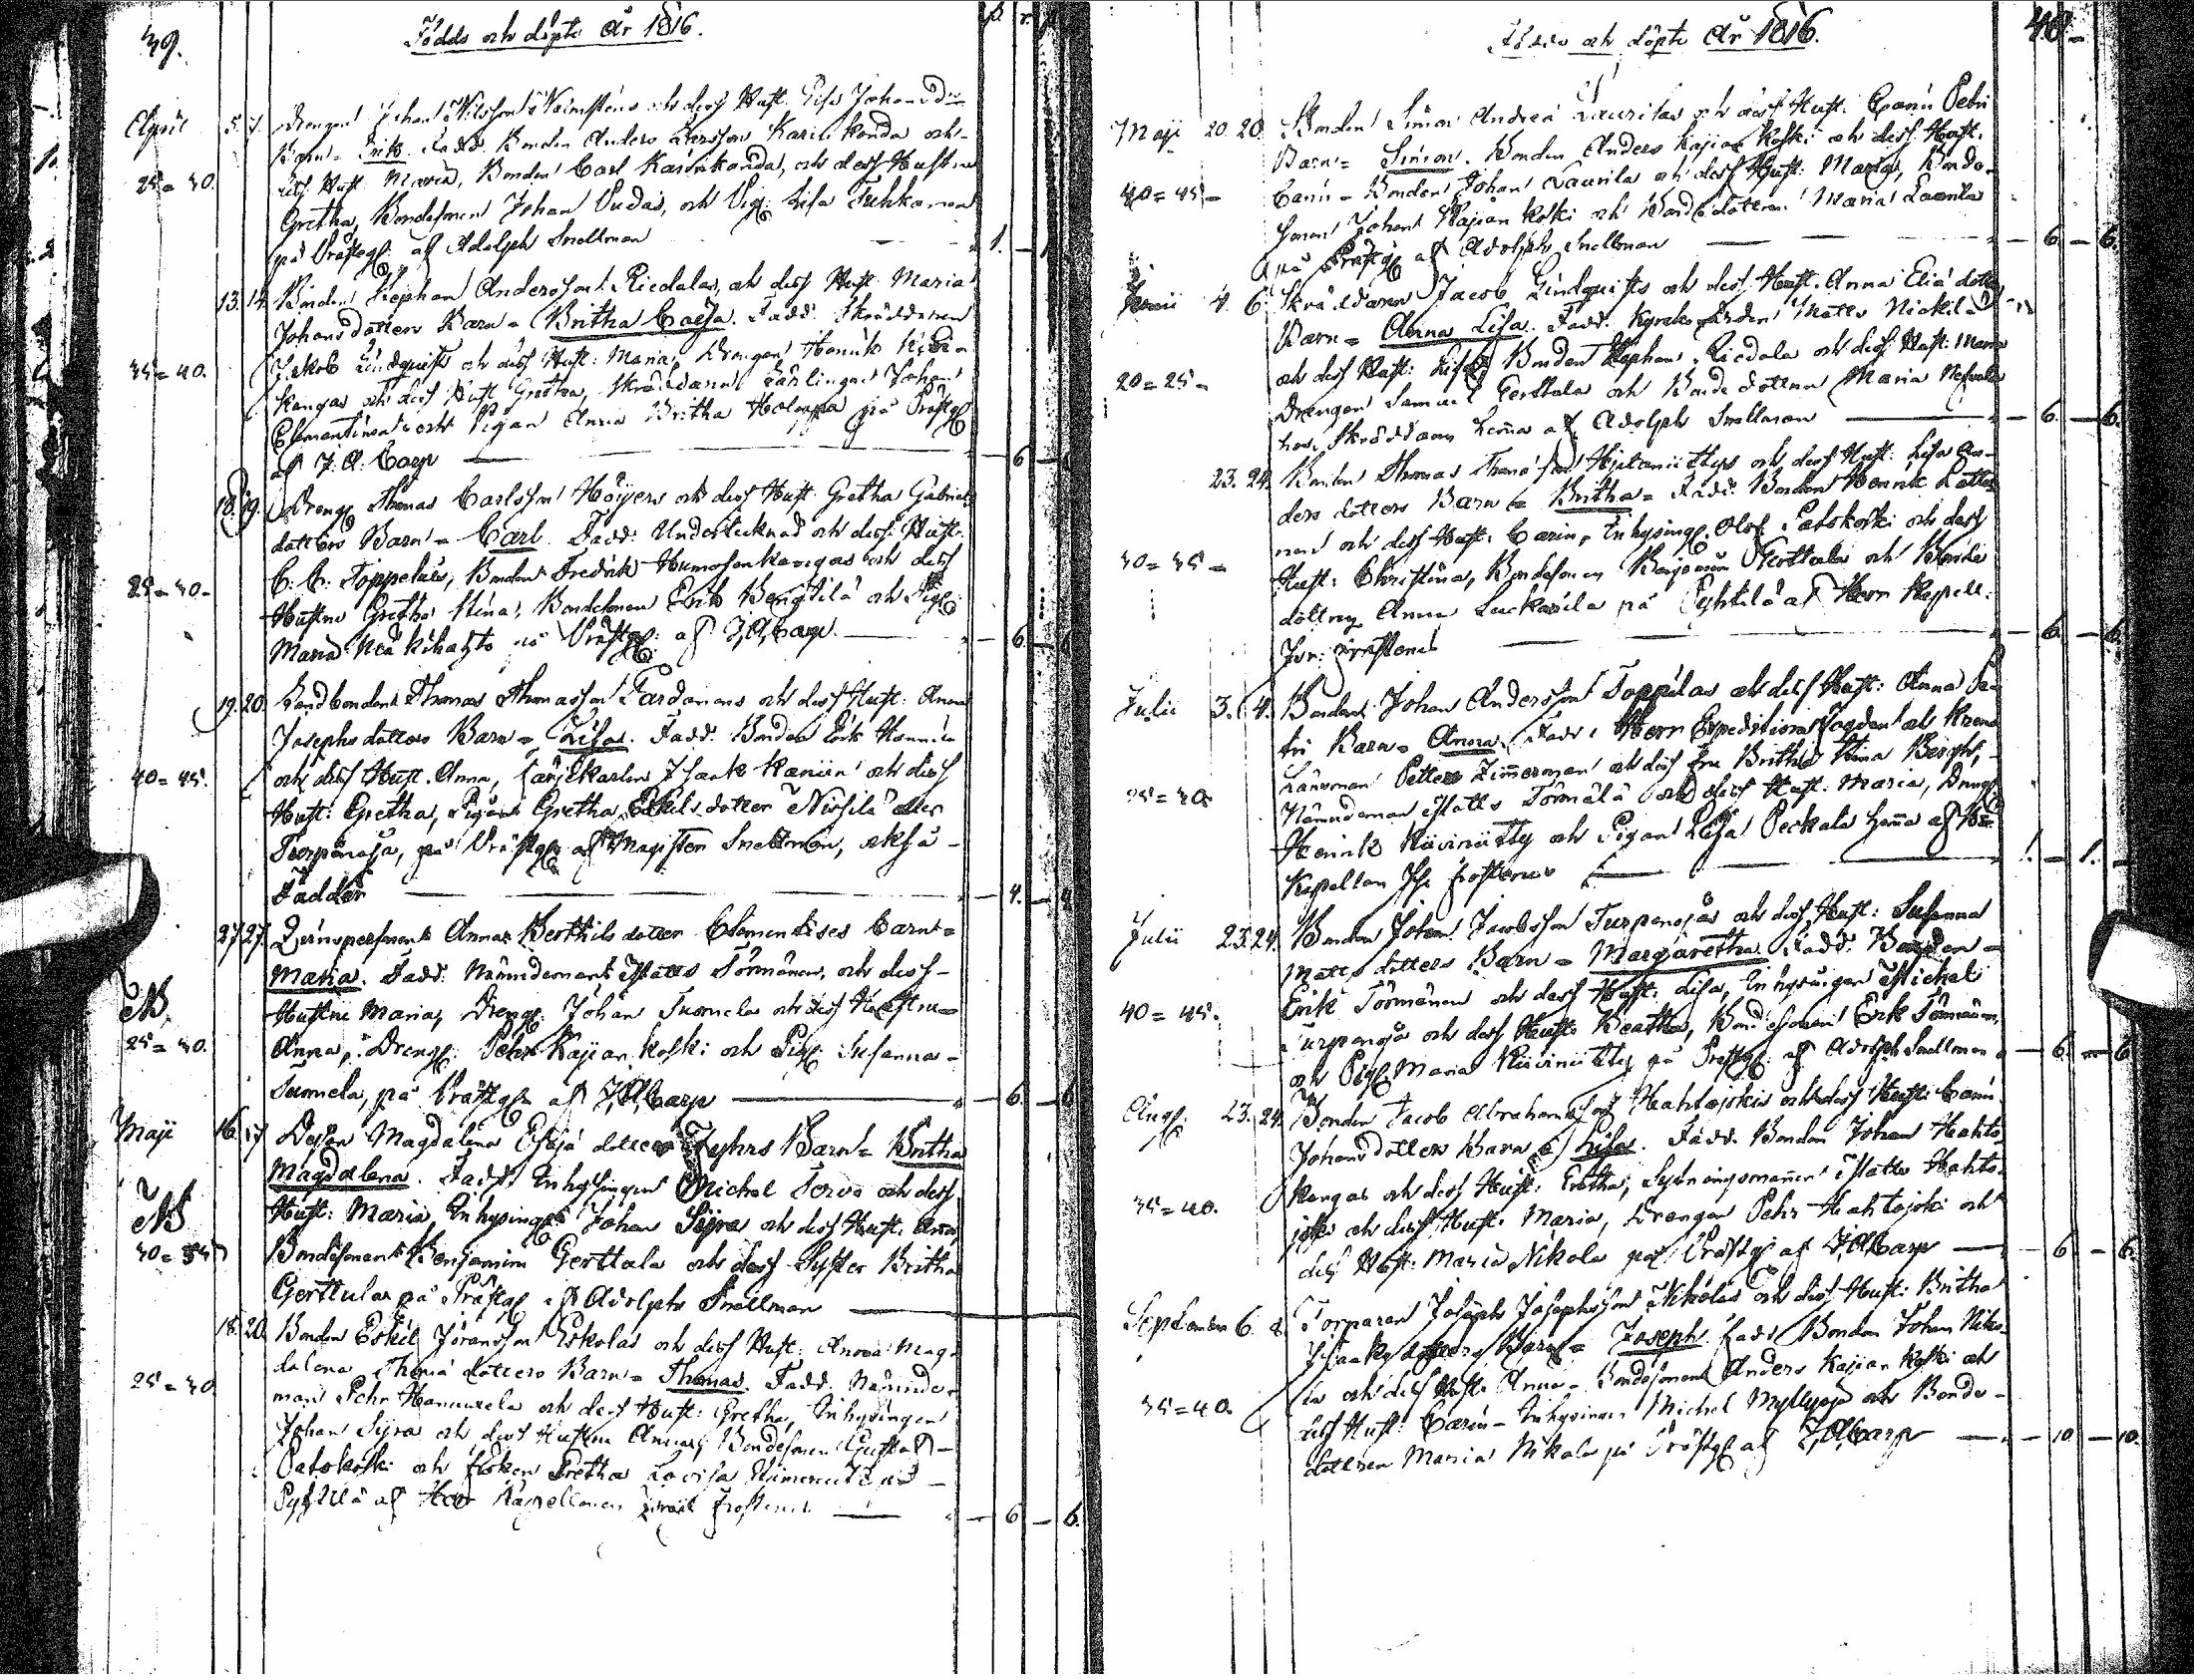 39.
Födde och döpte År 1816.
April 5. 7. Drengen Johan Nilsson Malmsténs och dess Hust. Lisa Johans d:rs
Barn = Erik. Fadd. Bonden Anders Larsson Karinkanda och
25 = 30. dess Hust. Maria, Bonden Carl Karinkanda, och dess Hustru
Gretha, Bondesonen Johan Pudas, och Pig: Lisa Tuhkanen
på Prästeg: af Adolph Snellman 1.
13. 14. Bonden Stephan Andersson Riedalas, och dess Hust. Maria
Johansdotters Barn = Britha Caisa. Fadd. Skräddaren
35 = 40. Jakob Lindquist och dess Hust: Maria, Drengen Henrik
Kangas och dess Hust Gretha, Skräddare Lärlingen Johan
Clemantinen och Pigan Anna Britha Holappa på Prästg:
af J. A. Carp 6
18. 19. Dreng Thomas Carlsson Höijers och dess Hust. Gretha Gabriels
dotters Barn = Carl. Fadd: Undertecknad och dess Hust.
25 = 30. C. C. Toppelius, Bonden Fredrik Humosenkangas och dess
Hustru Gretha Stina, Bondesonen Erik Bengtilä och Pig:
Maria på Prästg: af J. A. Carp. 6
19. 20. Landbonden Thomas Thomasson Pardanens och dess Hust: Anna
Josephsdotters Barn = Lisa. Fadd. Bonden Erik
40 = 45. och dess Hust. Anna, Färjekarlen Isaak och dess
Hust: Gretha, Pigan Gretha dotter eller
Turpänoja, på Prästg: af Magister Snellman, också
Fadder 4.
27. 27. Qvinspersonen Annas Berthils dotter Clementises Barn =
Maria. Fadd: Nämndeman Matts Törmänen, och dess
NB. Hustru Maria, Dreng: Johan Suomela och dess Hustru
25 = 30. Anna, Dreng: Pehr Kajian koski och Pig: Susanna
Suomela, på Prästg: af J. A. Carp 6 6
Maji 16. 17. Magdalena Esajä dotters Barn = Britha
Magdalena. Fadd. Inhysingen Michel Servo och dess
NB Hust: Maria, Inhysing: Johan Sijra och dess Hust. Anna,
Bondesonen Benjamin Gerttula och dess Syster Britha
Gerttula på Prästg: af Adolph Snellman
18. 20. Bonden Eskil Göransson Eskolas och dess Hust: Anna Mag-
dalena Thomä dotters Barn = Thomas. Fadd. Nämnde-
25 = 30. man Pehr och dess Hust: Gretha, Inhysingen
Johan Sijra och dess Hustru Anna, Bondesonen Gustaf
Patokoski och Gretha Lovisa
af Herr Kapellanen Frosterus. 6 6.
40.
Födde och döpte År 1816.
Maji 20. 20. Bonden Simon Andreä Lauritas och dess Hust. Carin Petri
Barn = Simon. Bonden Anders Kajian Koski och dess Hust.
40 = 45 Carin = Bonden Johan Laurila och dess Hust: Maria, Bonde-
sonen Johan Kajian koski och Bondedottern Maria Laurila
på Prästg: af Adolph Snellman 6 6.
Junii 4. 6. Skräddaren Jacob Lindquists och dess Hust. Anna Eliä dotters
Barn = Anna Lisa. Fadd: Kyrkovärden Matts Nickilä
20 = 25 och dess Hust: Lisa, Bonden Stephan Riedala och dess Hust: Maria
Drengen Samuel Gerttula och Bonde dottren Maria
hos Skräddaren hema af Adolph Snellman 6 6.
23. 24. Bonden Thomas Thomasson Hietaniittys och dess Hust: Lisa An-
ders dotters Barn = Britha = Fadd. Bonden Henrik
30 = 35 och dess Hust. Carin, Inhysing: Olof Patokoski och dess
Hust: Christina, Bondesonen Benjamin Gerttula och Bonde
dottren Anna Luckarila på af Herr Kapell:
Frosterus 6. 6.
Julii 3. 4. Bonden Johan Andersson Toppilas och dess Hust: Anna Pe-
tri Barn = Anna. Fadd: Herr Expeditions Fogden och Krono
Länsman Petter Zimmerman och dess Fru Britha Stina Bergh,
25 = 30 Nämndeman Matts Törmälä och dess Hust. Maria, Dreng:
Henrik Kiiviniitty och Pigan Lisa Perkala hema af Herr
Kapellan Frosterus 1. 1.
Julii 23. 24. Bonden Johan Jacobsson Turpenojas och dess Hust: Susanna
Matts dotters Barn = Margaretha. Fadd: Bonden
40 = 45. Erik Törmänen och dess Hust: Lisa, Inhysingen Michel
Turpenoja och dess Hust: Beatha, Bondesonen Erik Törmänen,
och Pig: Maria Kiiviniitty på Prästg: af Adolph Snellman 6. 6
Aug: 23. 24. Bonden Jacob Abrahamsson Hahtojokis och dess Hust: Carin
Johansdotters Barn = Lisa. Fadd. Bonden Johan Hahto-
35 = 40. kangas och dess Hust: Gretha, Sytningsmannen Matts Hahto-
joki och dess Hust. Maria, Drengen Pehr Hahtojoki och
dess Hust: Maria Nikola på Prästg: af J. A. Carp 6 6.
September 6. 8. Torparen Joseph Josephsson Nikolas och dess Hust: Britha
Isaks dotters Barn = Joseph. Fadd. Bonden Johan Niko-
35 = 40. la och dess Hust. Anna = Bondesonen Anders Kajian koski och
dess Hust: Carin = Inhysingen Michel Myllyoja och Bonde-
dottren Maria Nikola på Prästg: af J. A. Carp 10 10.